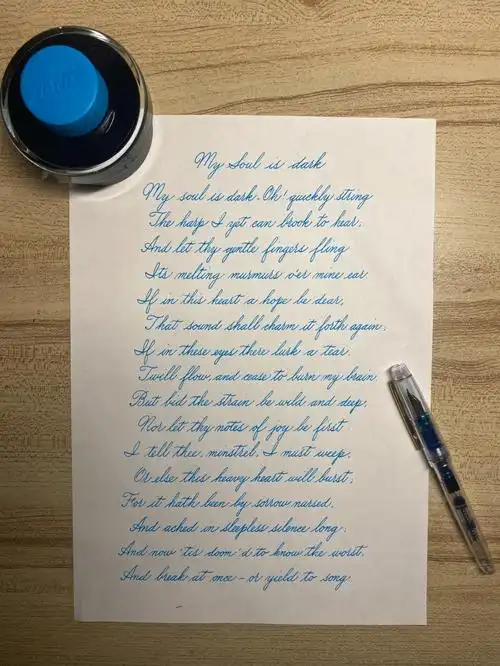 My Soul is dark
My soul is dark. Oh! quickly string
The harp I yet can brook to hear;
And let thy gentle fingers fling
Its melting murmurs o'er mine ear.
If in this heart a hope be dear,
That sound shall charm it forth again;
If in these eyes there lurk a tear
Twill flow, and cease to burn my brain.
But bid the strain be wild and deep,
Nor let thy notes of joy be first
I tell thee, minstrel, I must weep,
Or else this heavy heart will burst;
For it hath been by sorrow nursed,
And ached in sleepless silence long;
And now 'tis doom'd to know the worst,
And break at once - or yield to song.